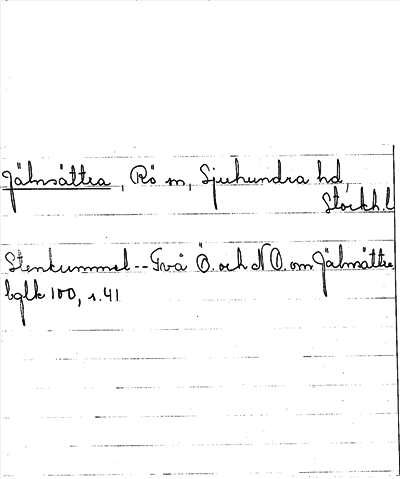 Jälnsättra, Rö sn, Sjuhundra hd,
Stockh.l
Stenkummel -- Två Ö. och NO. om Jälnsättra.
bglk 100, s. 41